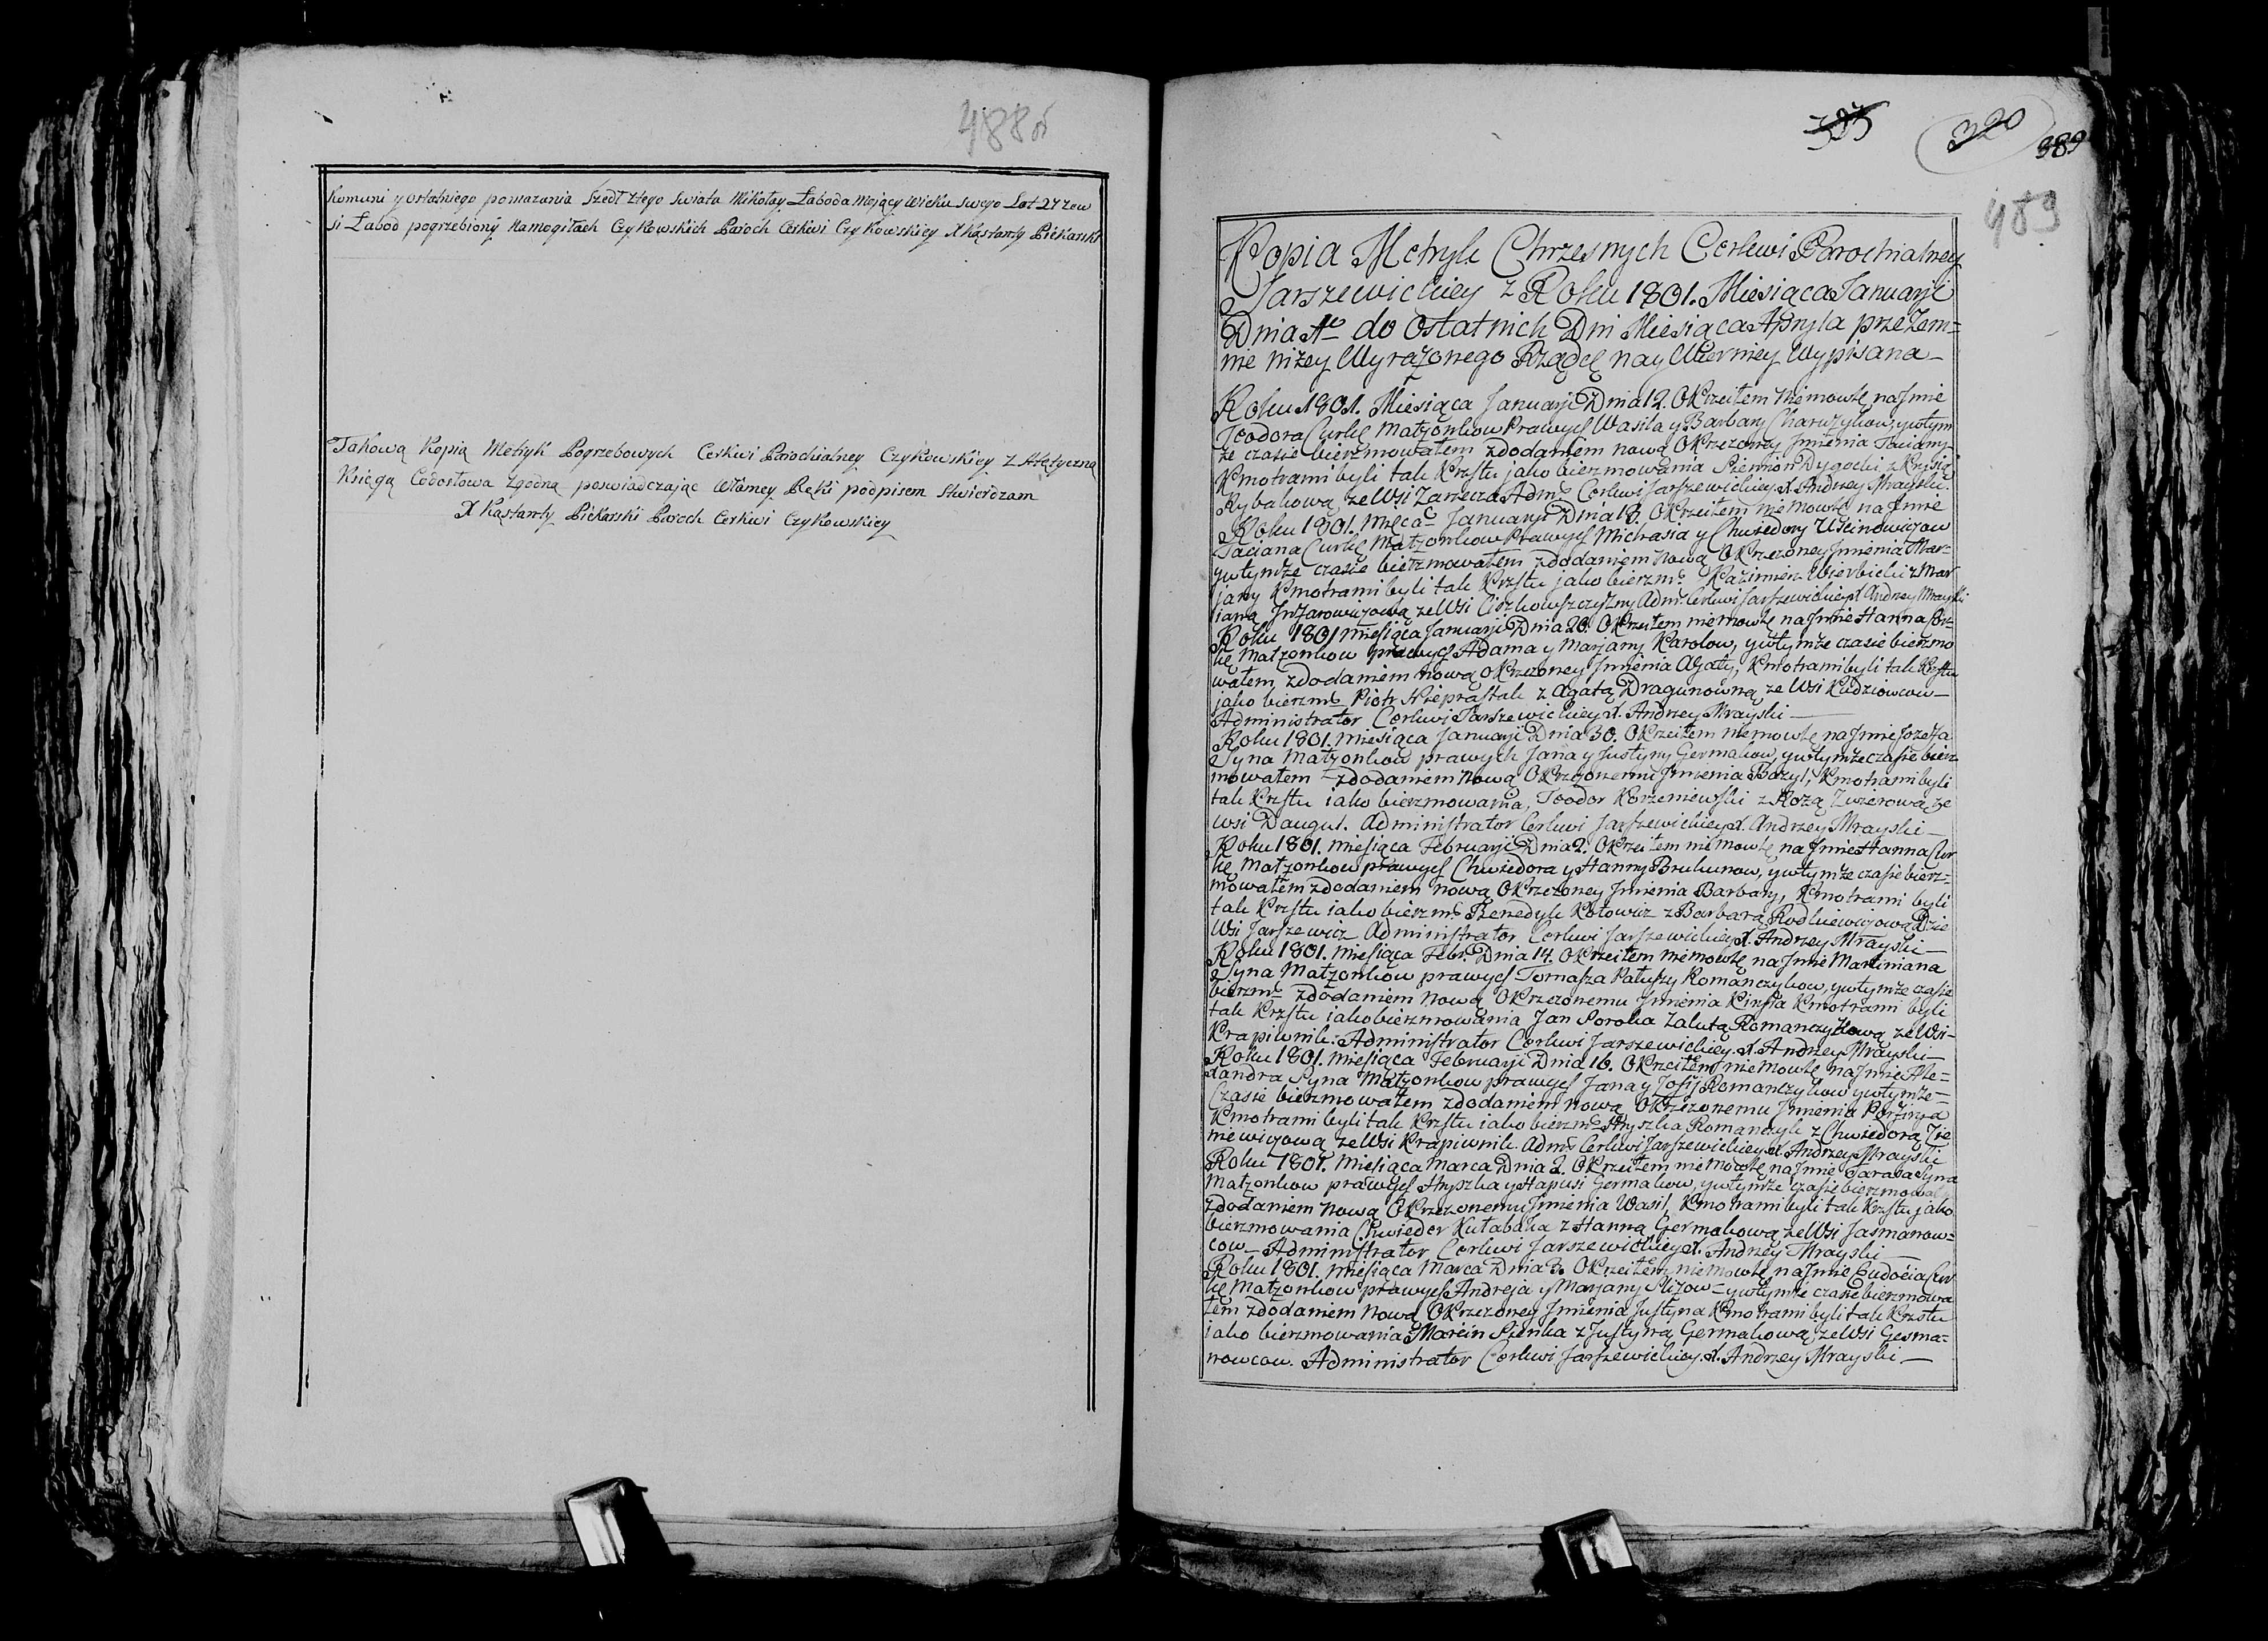 488об
Komuni y ostatniego pomazania Szedł ztego Swiata Mikołay Łaboda mający Wieku swego Lat 27 zew
si Łabod pogrzebiony na mogiłach Czykowskich Paroch Cerkwi Czykowskiey X Piekarski
Takową Kopią Metryk Pogrzebowych Cerkwi Parochialney Czykowskiey z
Księgą Codosłowa zgodną poswiadczając Własney Ręki podpisem Stwierdzam
X Piekarski Paroch Cerkwi Czykowskiey
390
389
489
Kopia Metryk Chrzesnych Cerkwi Parochialney
Jarszewickiey z Roku 1801. Miesiąca Januaryi
Dnia 1go do Ostatnich Dni Miesiąca Apryla przezem=
nie niżey Wyrażonego Rządcę nay Wierniey Wypisana
Roku 1801. Miesiąca Januaryi Dnia 12. Okrzciłem niemowlę na Jmie
Teodora Curkę Małżonkow Prawych Wasila y Barbary ywtym
że czasie bierzmowałem zdodaniem nową Okrzczoney Jmienia Taciany
Kmotrami byli tak Krzstu jako bierzmowania Siemion Dygocki z
Rybakową ze Wsi Zarzecza Adm: Cerkwi Jarszewickiey X. Andrzey Mrayski.
Roku 1801. Januaryi Dnia 18. Okrzciłem niemowlę na Jmie
Taciana Curkę Małżonkow Prawych Michasia y Chwiedory Uscinowiczow
ywtymże czasie bierzmowałem zdodaniem nową Okrzczoney Jmienia Mar=
jany Kmotrami byli tak Krzstu jako bierzm: Kazimierz Wierbicki z Mar
janą ze Wsi Adm: Cerkwi Jarszewickiey X Andrzey Mrayski
Roku 1801 miesiąca Januaryi Dnia 20. Okrzciłem niemowlę na Jmie Hanna Cór=
kę Małżonkow prawych Adama y Marjany Karolow, ywtymże czasie bierzmo
wałem zdodaniem nową Okrzczoney Jmienia Agaty, Kmotrami byli tak Krzstu
jako bierzm: Piotr z Agatą Dragunowną ze Wsi Kudziowcow
Administrator Cerkwi Jarszewickiey X. Andrzey Mrayski
Roku 1801. miesiąca Januaryi Dnia 30. Okrzciłem niemowlę na Jmie Jozefa
Syna Małżonkow prawych Jana y Justyny Germakow, ywtymże czasie bierz
mowałem zdodaniem nową Okrzczonemu Jmienia Bazyl, Kmotrami byli
tak Krzstu iako bierzmowania, Teodor Korzeniewski z Rozą ze
wsi Daugul. Administrator Cerkwi Jarszewickiey X. Andrzey Mrayski
Roku 1801. miesiąca Februaryi Dnia 2. Okrzciłem niemowlę na Jmie Hanna Cur
kę Małżonkow prawych Chwiedora y Hanny ywtymże czasie bierz=
mowałem zdodaniem nową Okrzczoney Jmienia Barbary, Kmotrami byli
tak Krzstu iako bierzm: Benedyk Kotowicz z Barbarą Rodkiewiczową ze
Wsi Jarszewicz Administrator Cerkwi Jarszewickiey X. Andrzey Mrayski
Roku 1801. miesiąca Febr: Dnia 14. Okrzciłem niemowlę na Jmie Martiniana
Syna Małżonkow prawych Tomasza Romanczykow, ywtymże czasie
bierzm: zdodaniem nową Okrzczonemu Jmienia Kmotrami byli
tak Krzstu iako bierzmowania Jan Soroka Romanczykową ze Wsi
Krapiwnik: Administrator Cerkwi Jarszewickiey X. Andrzey Mrayski
Roku 1801. miesiąca Februaryi Dnia 16. Okrzciłem niemowlę na Jmie Ale=
xandra Syna Małżonkow prawych Jana y Zofij Romanczykow ywtymże
Czasie bierzmowałem zdodaniem nową Okrzczonemu Jmienia
Kmotrami byli tak Krzstu iako bierzm: Hryszka Romanczyk z Chwiedorą Zie
niewiczową ze Wsi Krapiwnik. Adm: Cerkwi Jarszewickiey X. Andrzey Mrayski
Roku 1801. Miesiąca Marca Dnia 2. Okrzciłem niemowlę na Jmie Tarasa Syna
Małżonkow prawych Hryszka y Hapusi Germakow, ywtymże czasie bierzmował
zdodaniem nową Okrzczonemu Jmienia Wasil, Kmotrami byli tak Krzstu jako
bierzmowania Chwieder Kułabaka z Hanną Germakową ze Wsi Jasmanow=
cow Administrator Cerkwi Jarszewickiey X. Andrzey Mrayski
Roku 1801. miesiąca Marca Dnia 3. Okrzciłem niemowlę na Jmie Eudocia Cur
kę Małżonkow prawych Andreja y Marjany ywtymże czasie bierzmowa
łem zdodaniem nową Okrzczoney Jmienia Justyna Kmotrami byli tak Krzstu
iako bierzmowania Marcin Sienka z Justyną Germakową ze Wsi Gesma=
nowcow. Administrator Cerkwi Jarszewickiey X. Andrzey Mrayski